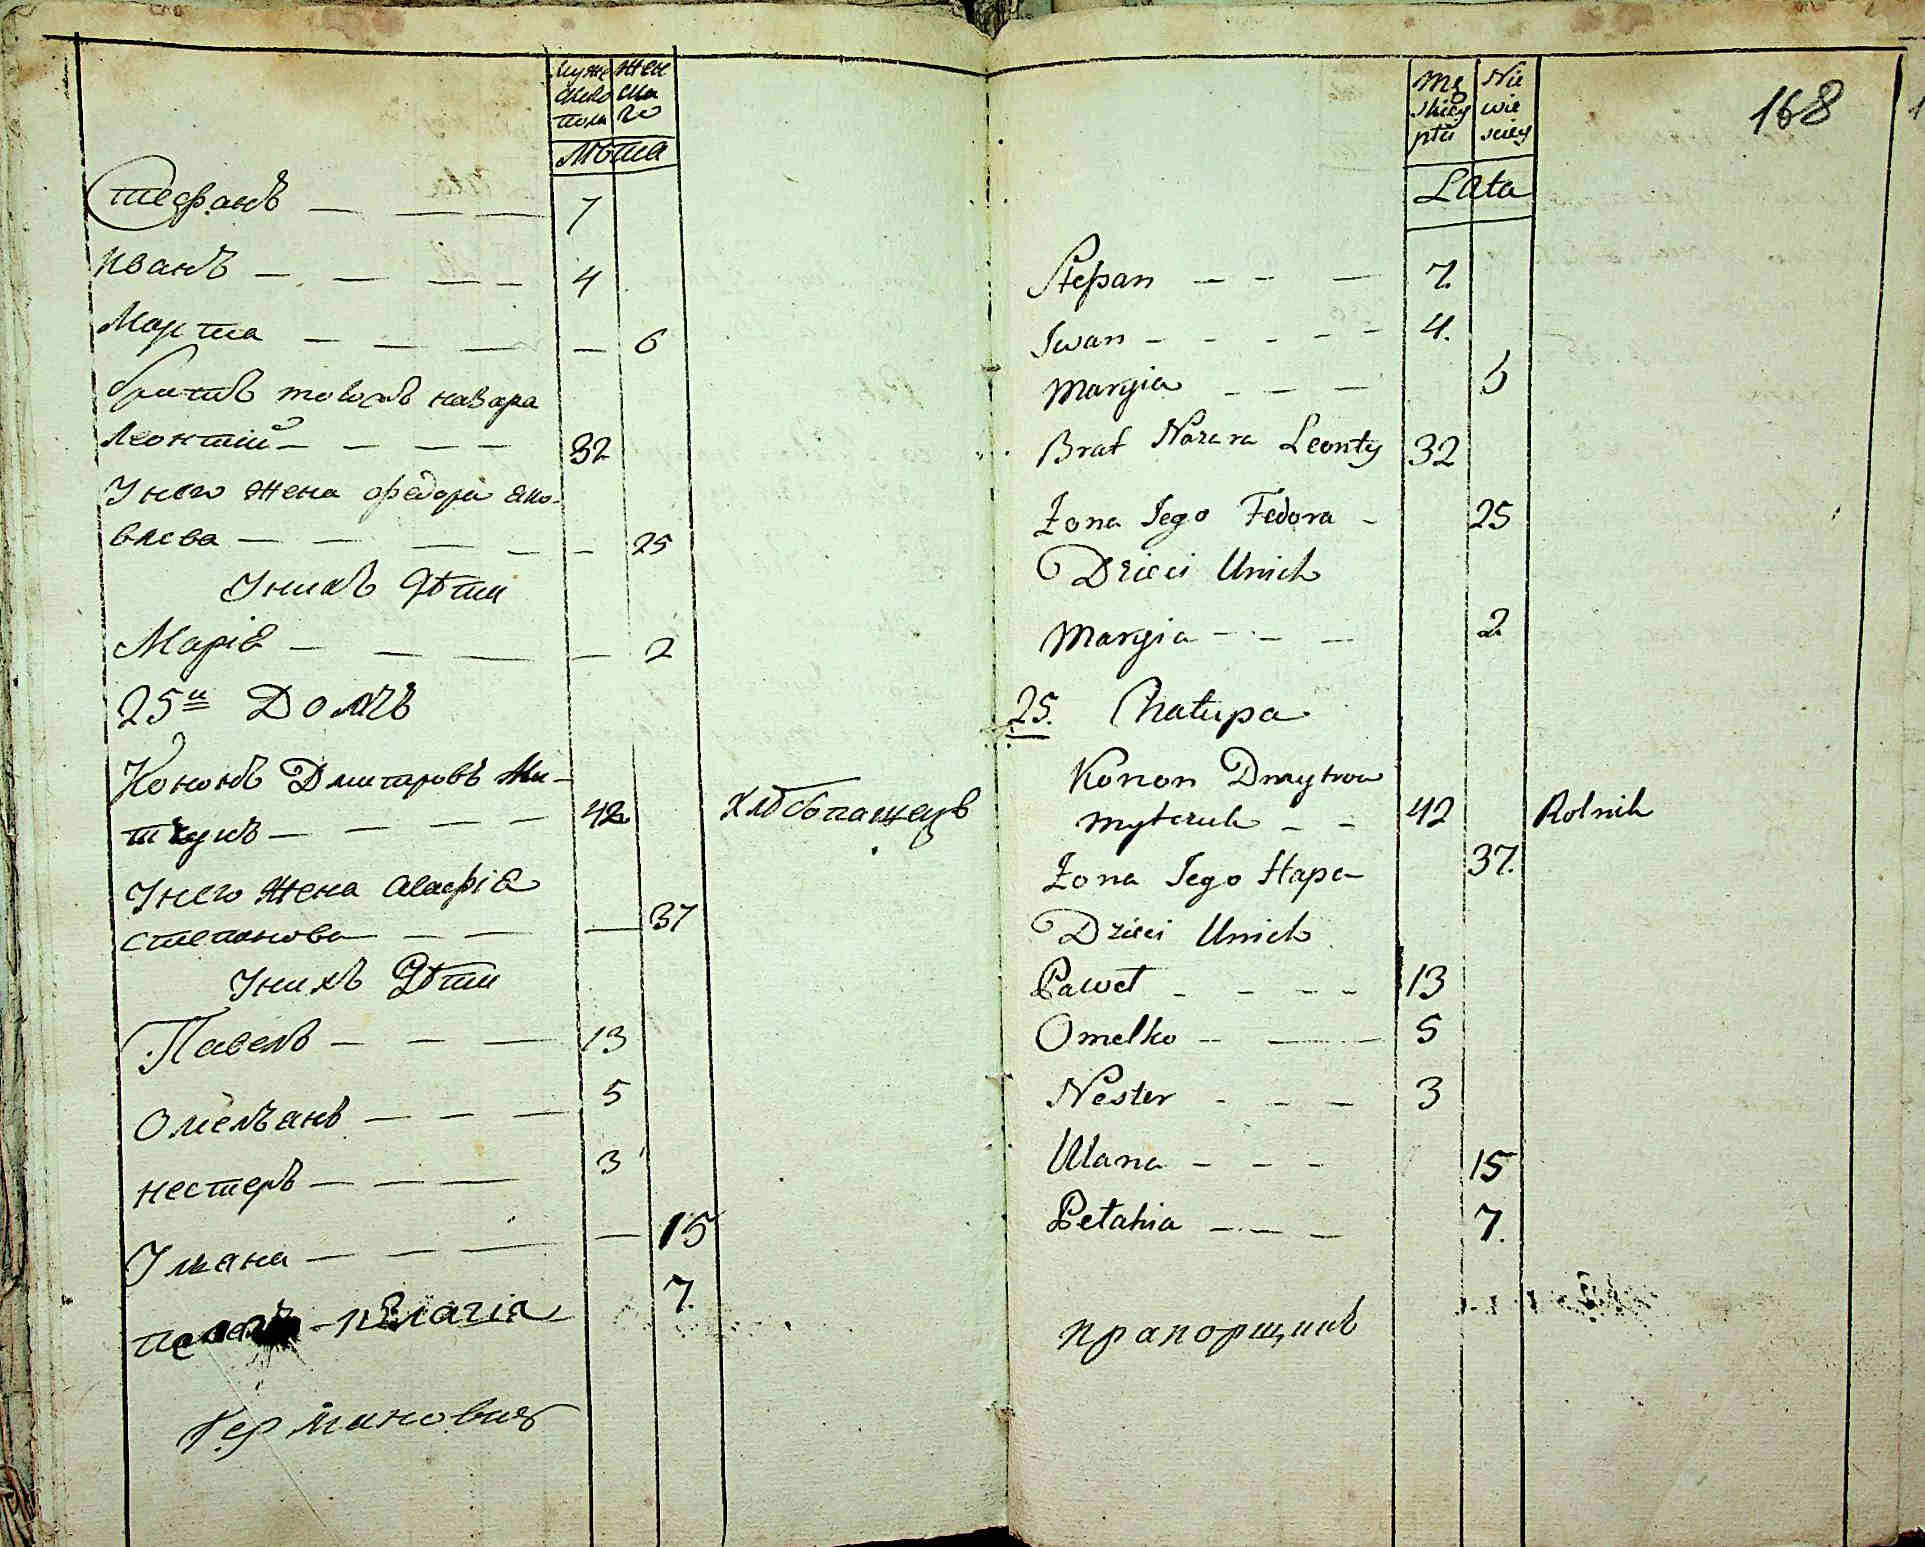 мужескаго пола
женскаго
Лѣта
Стефанъ — — — 7
Иванъ — — — 4
Марта — — — — 6
братъ тогожъ назара
Леонтій — — — — 32
Унего жена Федора яко-
влева — — — — — 25
Унихъ Дѣти
Маріа — — — — 2
25й Домъ
Кононъ Дмитровъ Ми-
тчукъ — — — — 42 Хлѣбопашецъ
Унего жена Агафіа
степанова — — — 37
Унихъ Дѣти
Павелъ — — — 13
Омельянъ — — — 5
нестеръ — — — 3
Ульяна — — — — 15
пелагіа 7.
Германовичъ
168
Męskiey płci
Niewieściey
Lata
Stepan — — — 7.
Iwan - - - - - 4.
Maryia — — — 6
Brat Nazara Leonty 32
Żona Iego Fedora - 25
Dzieci Unich
Maryia - - — 2
25. Chałupa
Konon Dmytrow
Mytczuk — — 42 Rolnik
Żona Iego Hapa 37.
Dzieci Unich
Paweł - - - - 13
Omelko - — — 5
Nester - - — 3
Ulana - - - 15
Pełahia — - — 7.
прапорщикъ